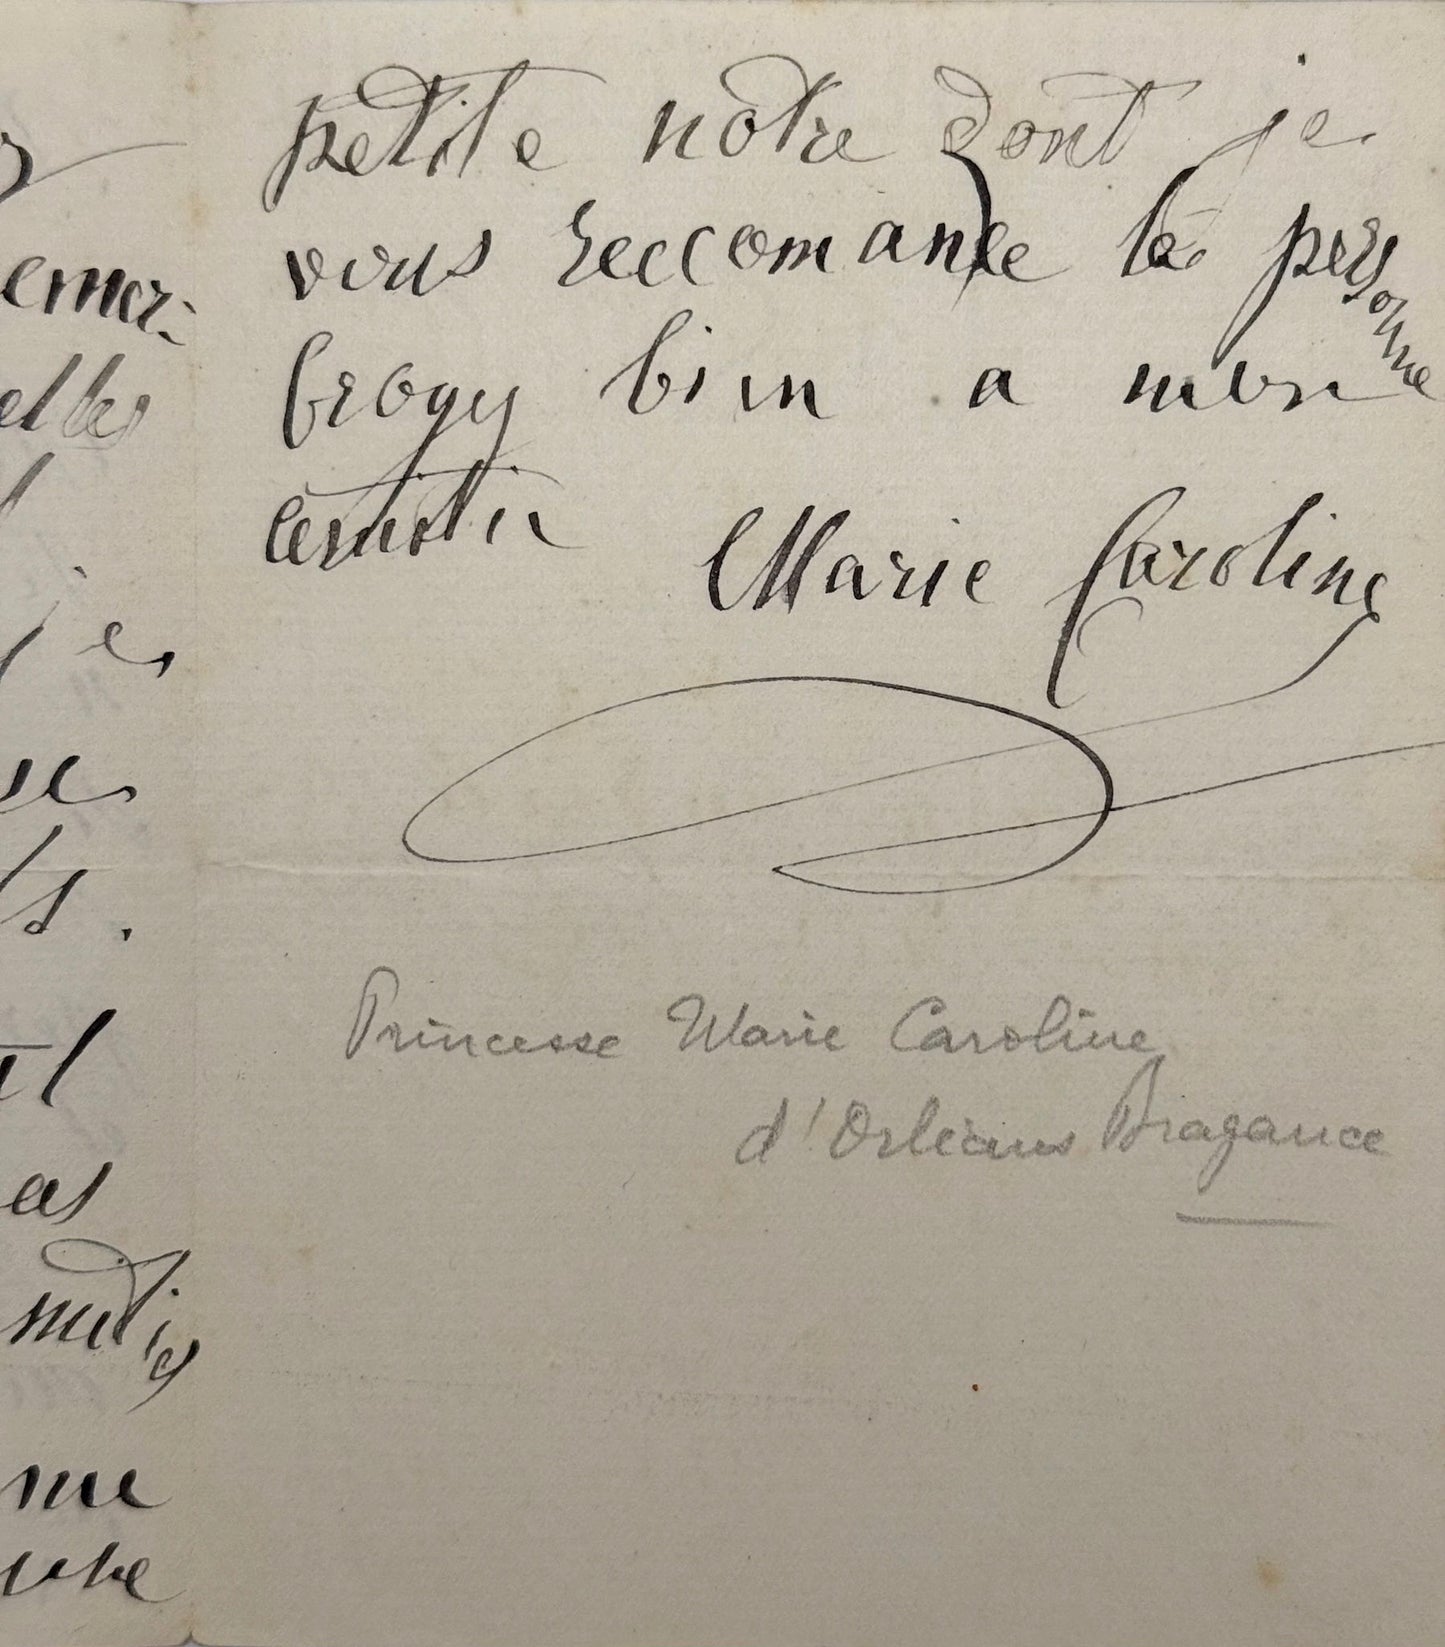 petite nôtre dont je
vous reccomande la personne
croyy bien a mon
amitie
Marie Caroline
Princesse Marie Caroline
d'Orléans Bragance
elles
je
as
me